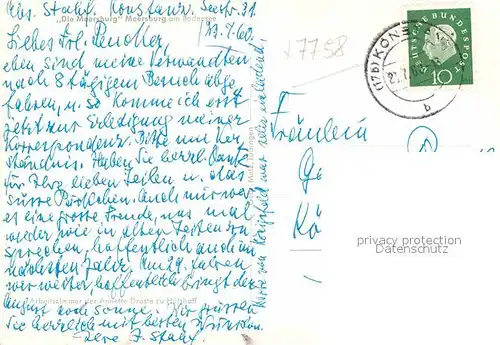 Abs. Stahl, Konstanz, Seestr. 31
"Die Meersburg" Meersburg am Bodensee
23.7.60.
Liebes Frl.
eben sind meine Verwandten
nach 8 tägigem Besuch abge
fahren, u. so komme ich erst
jetzt zur Erledigung meiner
Korrespondenz. Bitte um Ver
ständnis. Haben Sie herzl. Dank
für Ihre lieben Zeilen u. das
süsse Päckchen. Auch mir war
es eine grosse Freude, uns mal
wieder wie in alten Zeiten zu
sprechen, hoffentlich auch im
nächsten Jahr. Am 29. fahren
wir weiter hoffentlich bringt der
Arbeitszimmer der Annette Droste zu Hülshoff
August noch Sonne. Wir grüssen
Sie herzlich mit besten Wünschen
Ihre F. Stahl
Karte von Königsfeld war sehr
+7758
(17b) KONSTANZ
b
DEUTSCHE BUNDESPOST
10
Fräulein
privacy protection
Datenschutz